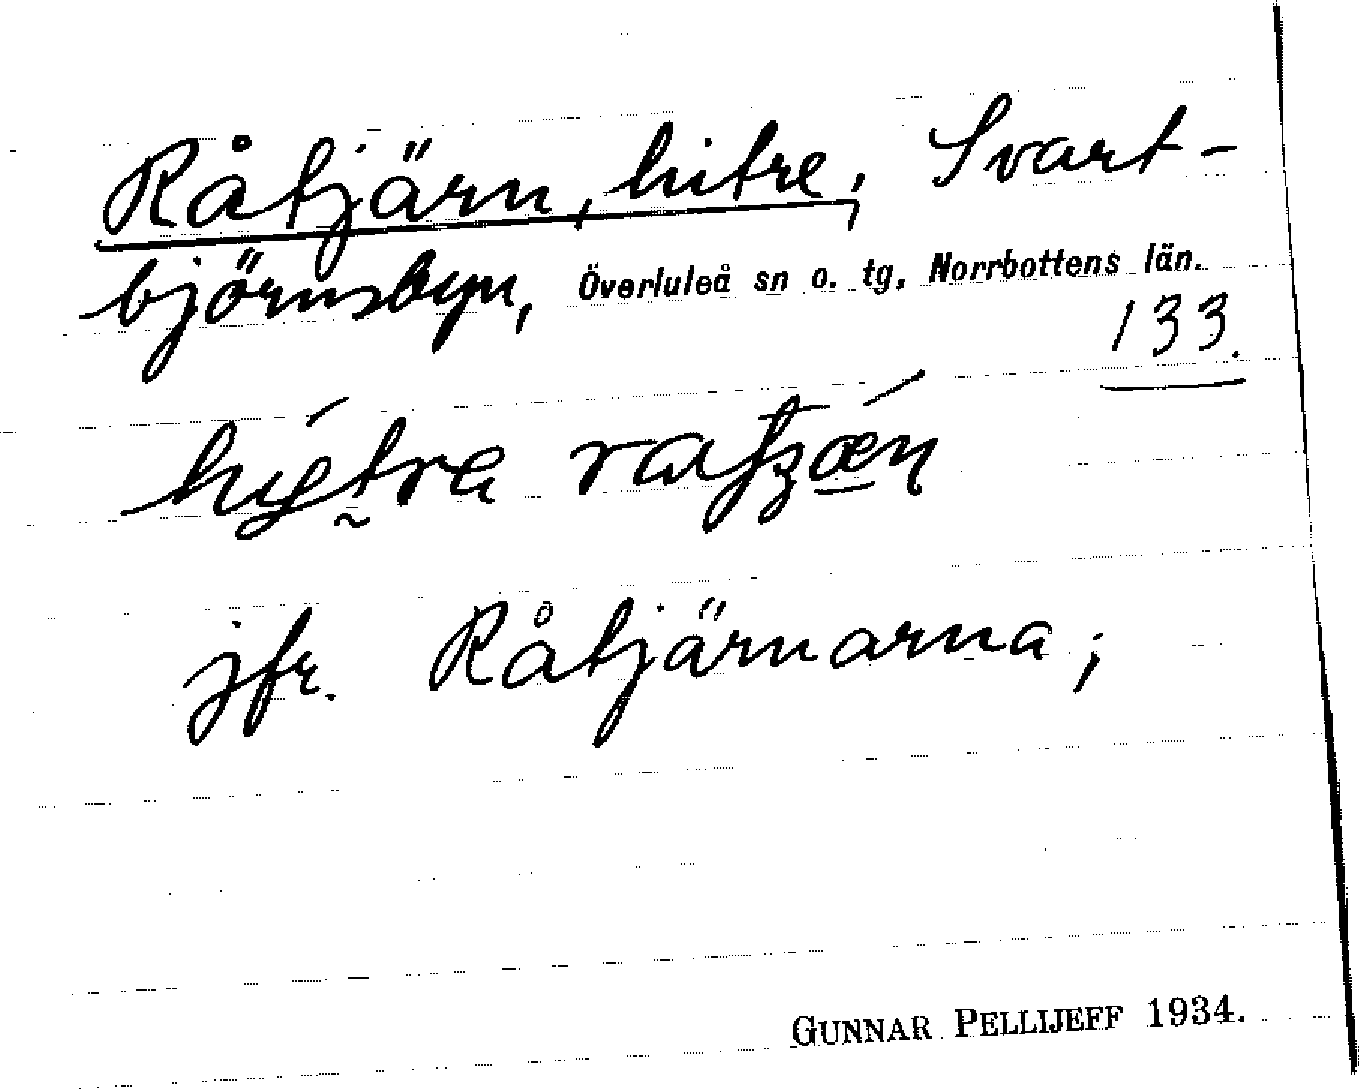 Råtjärn, hitre; Svart-
björnsbyn, Överluleå sn o. tg, Norrbottens län.
133.
jfr. Råtjärnarna;
GUNNAR PELLIJEFF 1934.